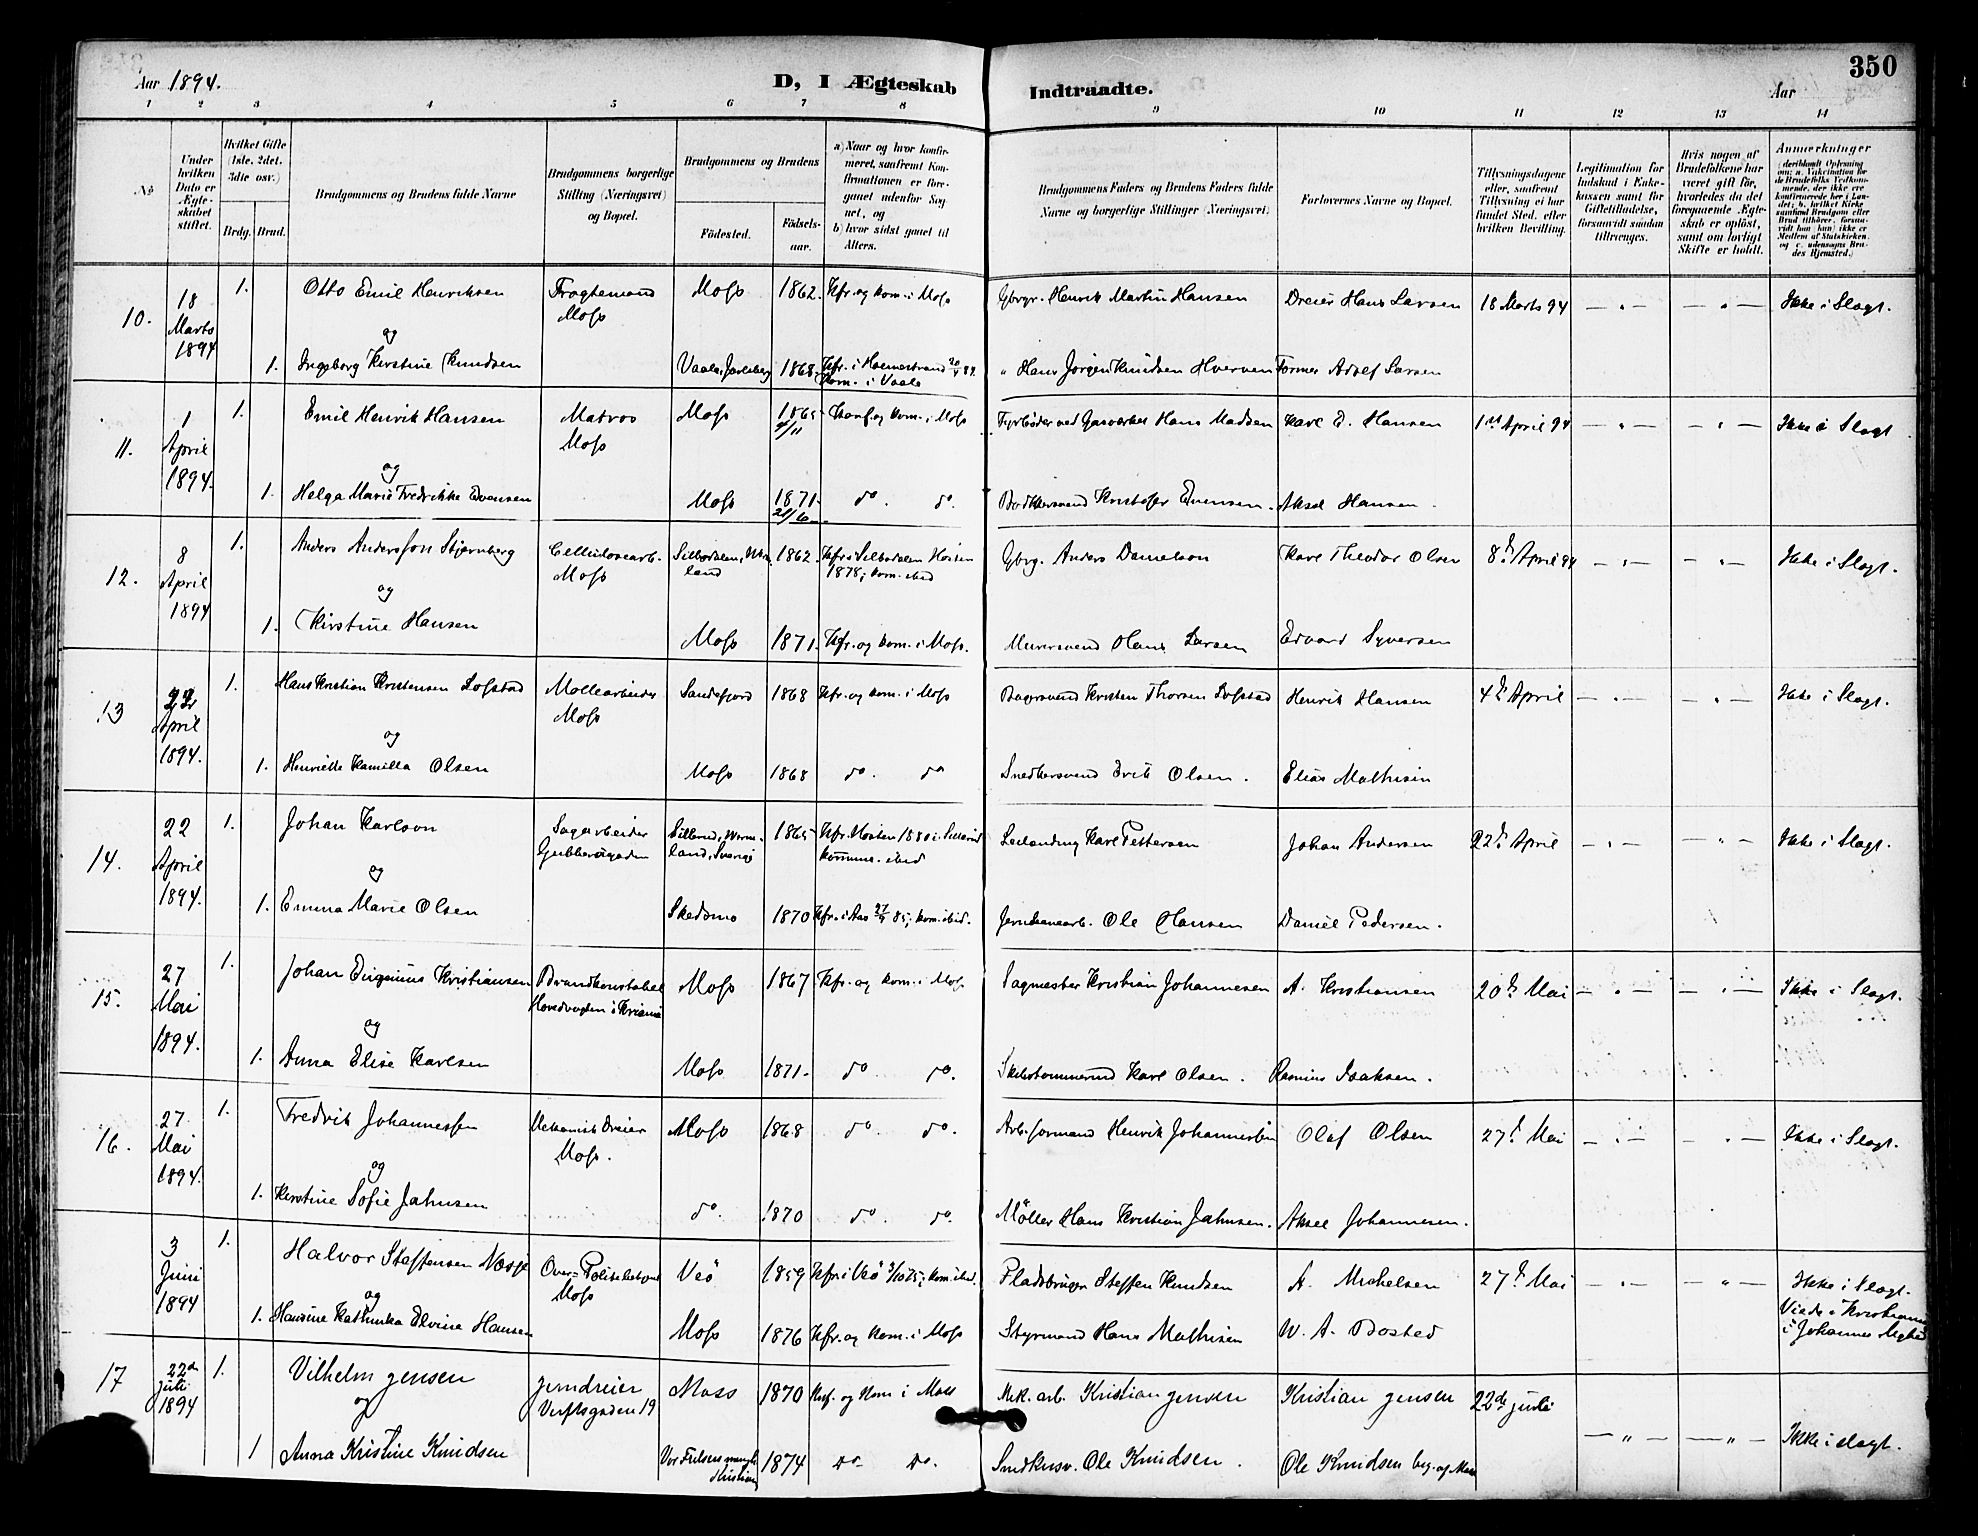 350
Aar 1894.
D, I Ægteskab Indtraadte.
Aar
1 2 3 4 5 6 7 8 9 10 11 12 13 14
No
Under hvilken Dato er Ægteskabet stiftet.
Hvilket Gifte (1ste, 2det, 3die osv.)
Brdg. Brud.
Brudgommens og Brudens fulde Navne
Brudgommens borgerlige Stilling (Næringsvei) og Bopæl.
Brudgommens og Brudens
Födested.
Födselsaar.
a) Naar og hvor konfirmeret, saafremt Konfirmationen er foregaaet udenfor Sognet, og
b) hvor sidst gaaet til Alters.
Brudgommens Faders og Brudens Faders fulde Navne og borgerlige Stillinger (Næringsvei)
Forlovernes Navne og Bopæl.
Tillysningsdagene eller, saafremt Tillysning ei har fundet Sted, efter hvilken Bevilling.
Legitimation for Indskud i Enkekassen samt for Giftetilladelse, forsaavidt saadan tiltrænges.
Hvis nogen af Brudefolkene har været gift för, hvorledes da det foregaaende Ægteskab er oplöst, samt om lovligt Skifte er holdt.
Anmærkninger (deriblandt Oplysning om: a. Vaksination for de Brudefolks Vedkommende, der ikke ere konfirmerede her i Landet; b. hvilket Kirkesamfund Brudgom eller Brud tilhörer, forsaavidt han (hun) ikke er Medlem af Statskirken, og c. udensogns Brudes Hjemsted.)
10. 18 Marts 1894 1. Otto Emil Henriksen Fragtemand Moss Moss 1862. Kfr. og kom. i Moss Gbrgr. Henrik Martin Hansen Dreier Hans Larsen 18 Marts 94 — „ — — „ — Ikke i Slægt.
og
1. Ingeborg Kirstine Knudsen Vaale, Jarlsberg 1868 Kfr. i Holmestrand Kom. i Vaale „ Hans Jörgen Knudsen Hverven Former Adolf Larsen
11. 1 April 1894. 1. Emil Henrik Hansen Matros Moss Moss 1865 Konf. og kom. i Moss Fyrböder ved Gasverket Hans Madsen Karl E. Hansen 1st April 94 — „ — — „ — Ikke i Slægt
og
1. Helga Marie Fredrikke Evensen Moss 1871. 21/6 do. do. Bödkersvend Kristofer Evensen. Aksel Hansen.
12. 8 April 1894 1. Anders Andersson Stjernberg Cellulosearb. Moss Silbodalen, Wermland 1862. Kfr. i Silbodalen Hösten 1878, kom. ibid Gbrg. Anders Danielson Karl Theodor Olsen 8de April 94 — „ — — „ — Ikke i Slægt.
og
1. Kirstine Hansen Moss 1871. Kfr. og kom. i Moss. Murersvend Hans Larsen Edvard Syversen
13 22 April 1894. 1. Hans Kristian Kristensen Lofstad Möllearbeider Moss Sandefjord 1868 Kfr. og kom. i Moss Bagersvend Kristen Thorsen Lofstad Henrik Hansen 4de April — „ — — „ — Ikke i Slægt.
og
1. Henriette Kamilla Olsen Moss 1868 do. do Snedkersvend Erik Olsen. Elias Mathisen
14. 22 April 1894. 1. Johan Karlson Sagarbeider Gubberögaden Sillerud, Wermland, Sverige 1865 Kfr. Hösten 1880 i Sillerud kommun. ibid Karl Pettersen Johan Andersen 22de April — „ — — „ — Ikke i Slægt.
og
1. Emma Marie Olsen Skedsmo 1870 Kfr. i Aas 27/9 85, kom. ibid. Jernbanearb. Ole Hansen Daniel Pedersen.
15. 27 Mai 1894. 1. Johan Eugenius Kristiansen Brandkonstabel Hovedvagten i Kriania Moss 1867 Kfr. og kom. i Moss Sagmester Kristian Johannesen A. Kristiansen 20de Mai — „ — — „ — Ikke i Slægt.
og
1. Anna Elise Karlsen Moss 1871. do do. Skibstömmermd Karl Olsen. Rasmus Isaksen.
16. 27 Mai 1894. 1. Fredrik Johannessen Mekanisk Dreier Moss. Moss 1868 do. do. Arb.formand Henrik Johannessen Olaf Olsen 27de Mai — „ — — „ — Ikke i Slægt.
og
1. Kirstine Sofie Jahnsen do. 1870 do. do. Möller Hans Kristian Jahnsen. Aksel Johannesen.
3 Juni 1894 1. Halvor Steffensen Næsje Over-Politibetjent Moss Veö 1859 Kfr. i Veö 3/10 75, kom. ibid. Pladsbruger Steffen Knudsen A. Michelsen 27de Mai — „ — — „ — Ikke i Slægt. Viede i Kristiania i Johannes Menighed
og
1. Hansine Kathinka Elvine Hansen Moss 1876 Kfr. og kom. i Moss Styrmand Hans Mathisen W. A. Bosted
17 22de juli 1894 1. Vilhelm Jensen Jerndreier Verftsgaden 19 Moss 1870 Kof. og Kom i Moss Mek. arb. Kristian Jensen Kristian Jensen 22de juli — „ — — „ — Ikke i slægt.
og
1 Anna Kristine Knudsen Vor Frelsers mengh. Kristiania 1874 do do. Snedkersv. Ole Knudsen. Ole Knudsen beg. af Moss